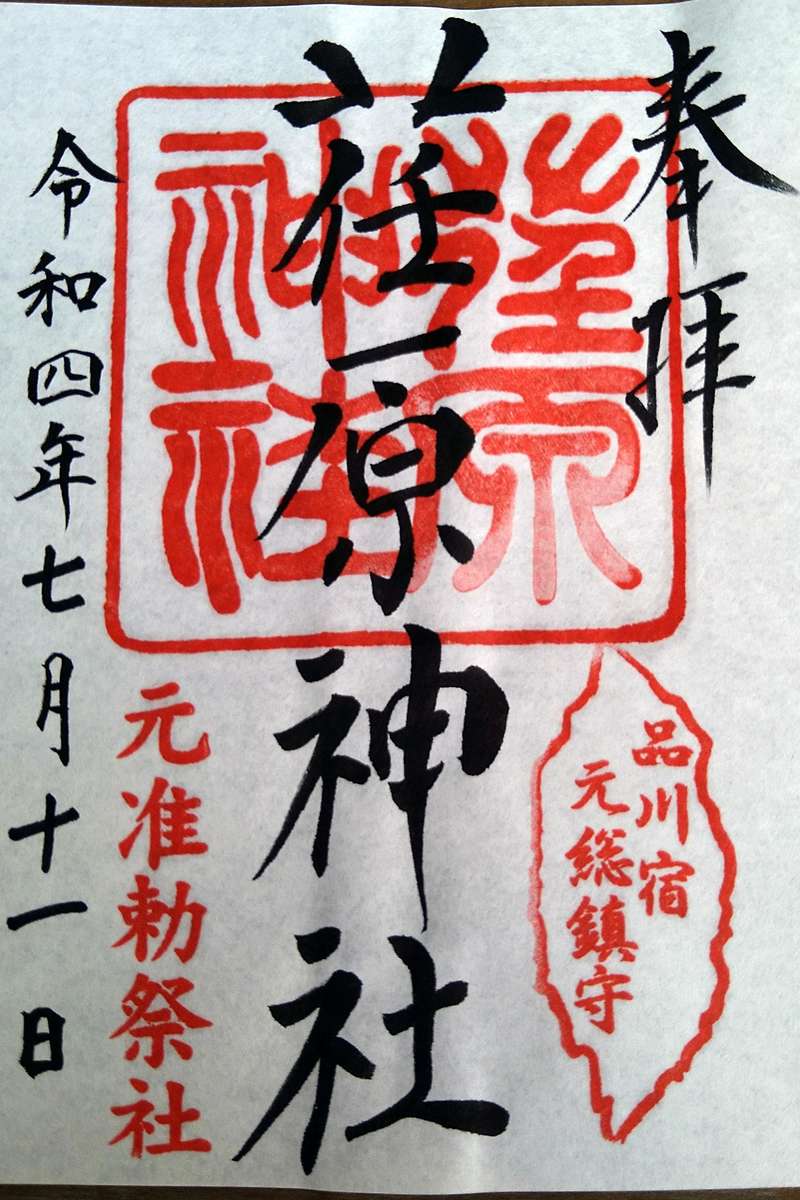 奉拝
品川宿
元総鎮守
荏原神社
元准勅祭社
令和四年七月十一日